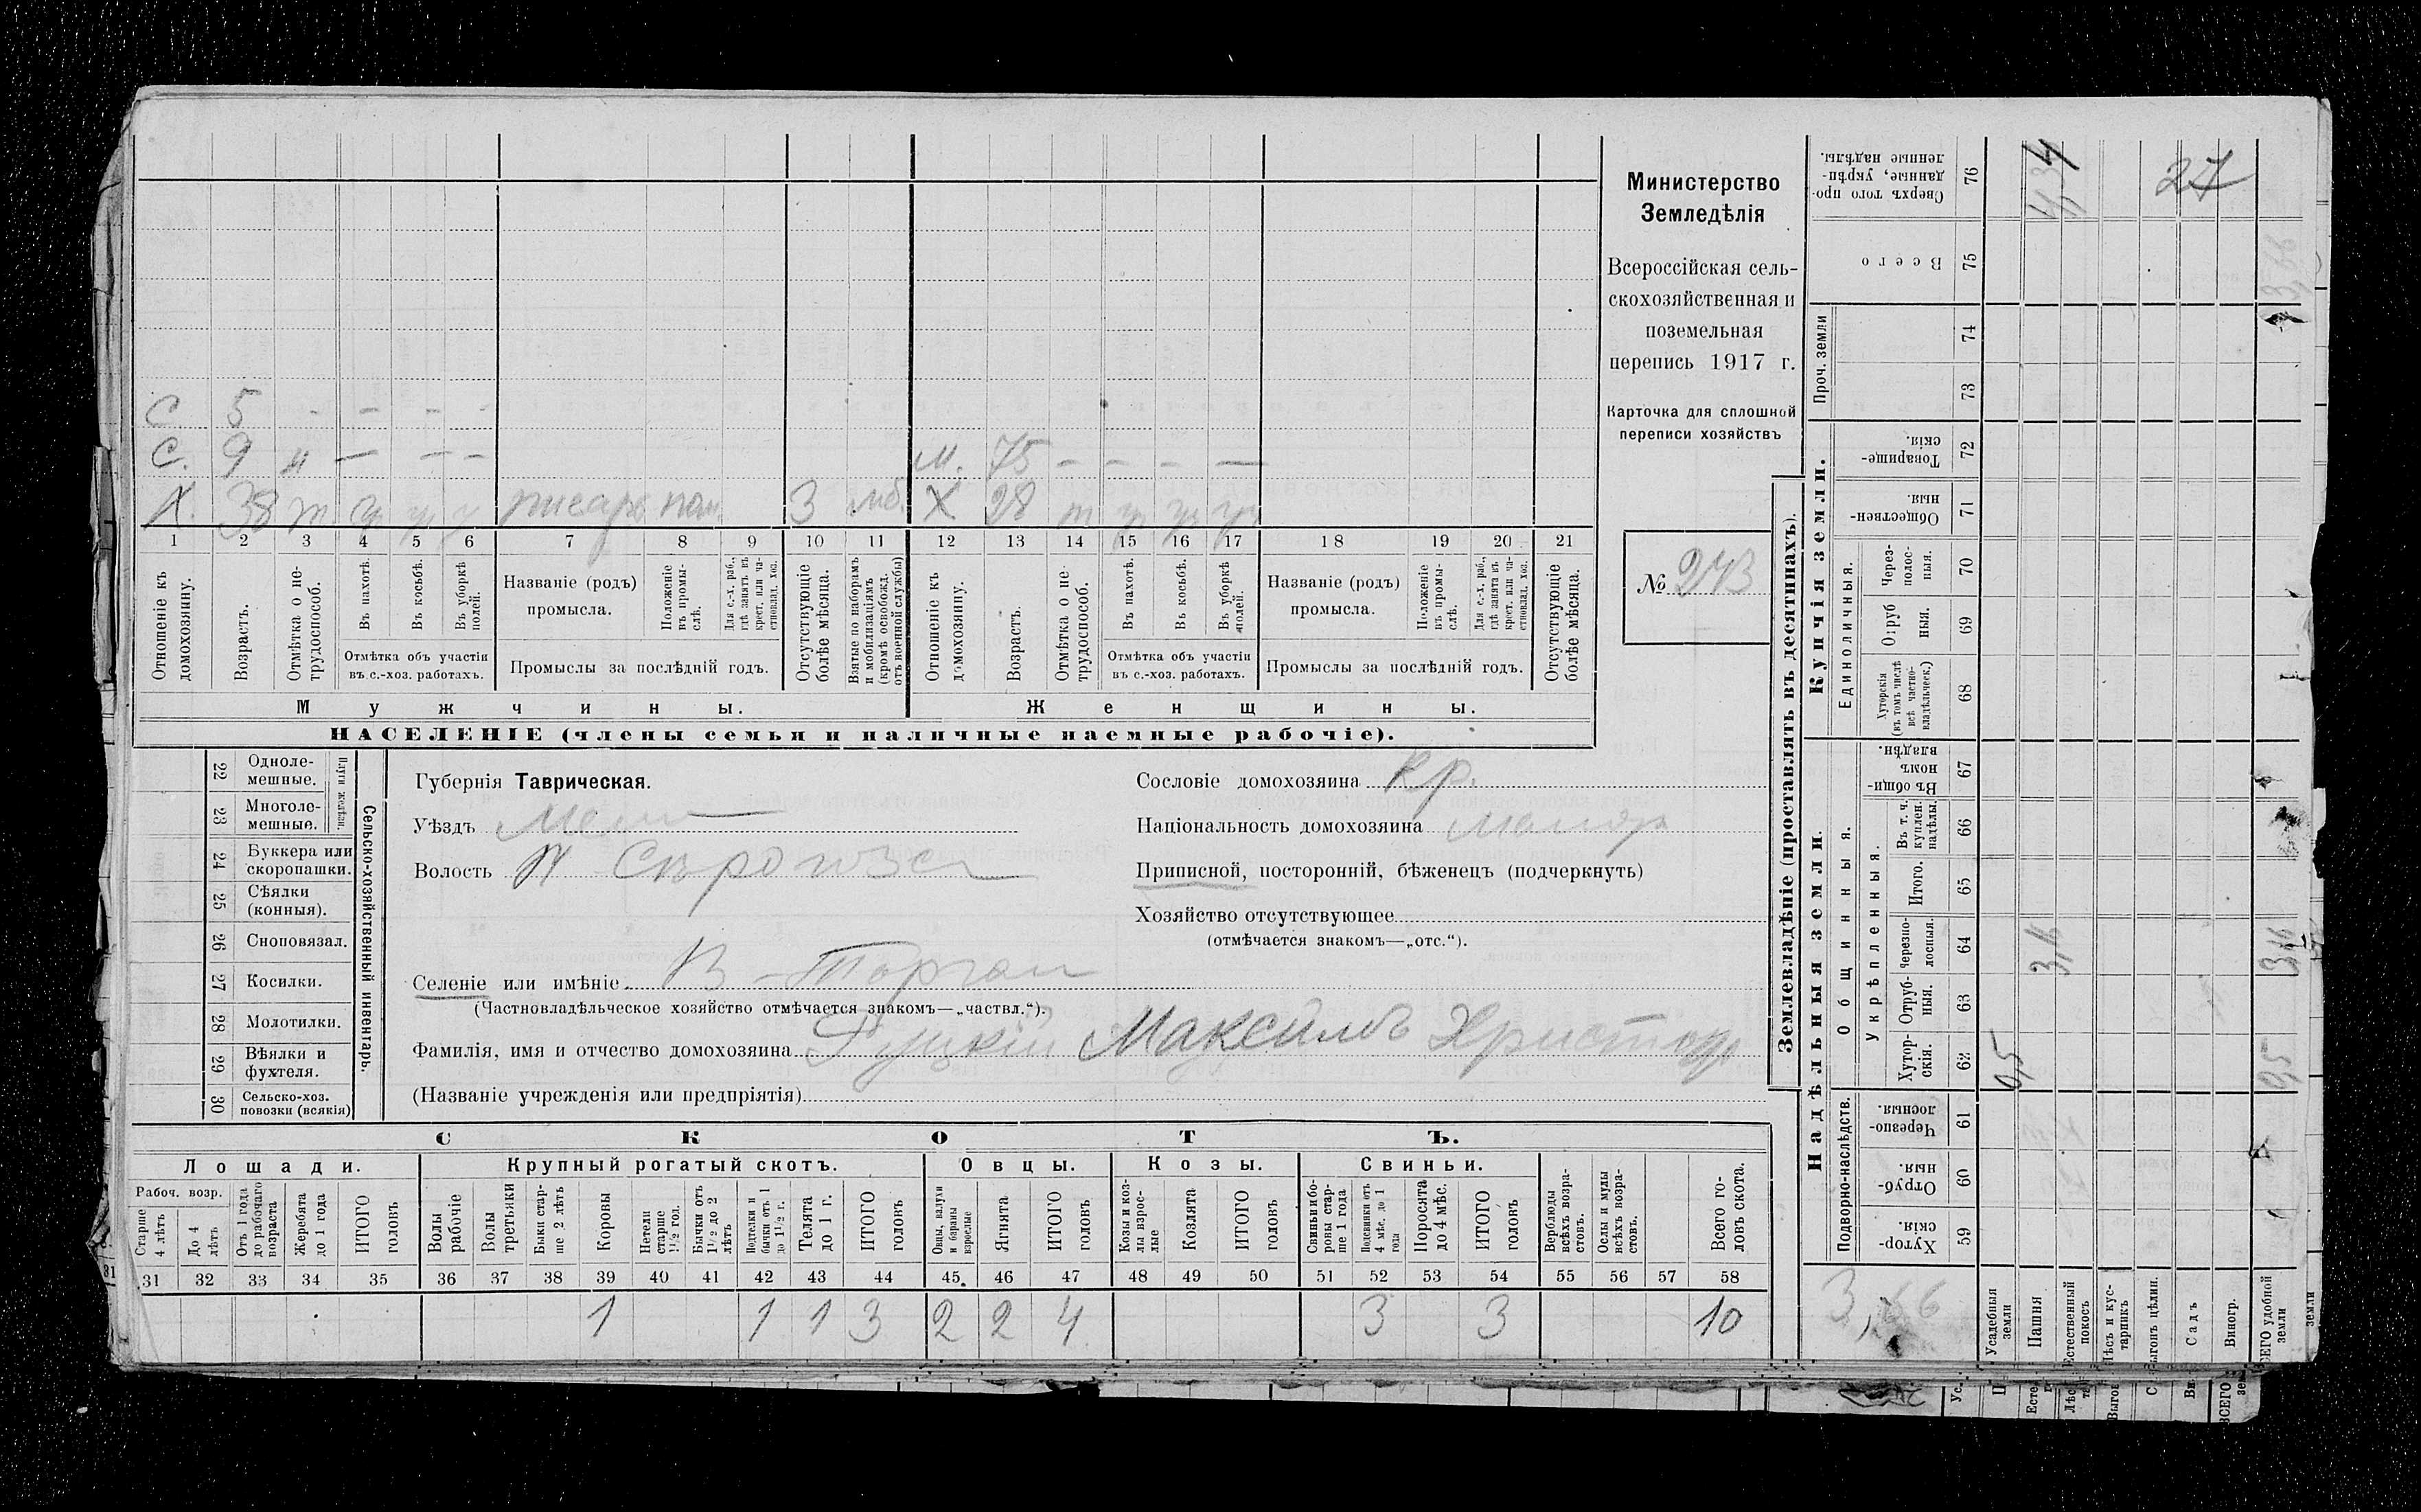 С 5 - - - -
С. 9 н — — —
М. 75 — — — —
Х. 38 т. у у у писарь пом 3 моб.
Х 28 т у у у
1 2 3 4 5 6 7 8 9 10 11 12 13 14 15 16 17 18 19 20 21
Отношеніе къ домохозяину.
Возрастъ.
Отмѣтка о нетрудоспособ.
Въ пахотѣ.
Въ косьбѣ.
Въ уборкѣ полей.
Отмѣтка объ участіи
въ с.-хоз. работахъ.
Названіе (родъ)
промысла.
Положеніе въ промыслѣ.
Для с.-х. раб., гдѣ занятъ въ крест. или частновлад. хоз.
Промыслы за послѣдній годъ.
Отсутствующіе болѣе мѣсяца.
Взятые по наборамъ и мобилизаціямъ (кромѣ освобожд. отъ военной службы)
Отношеніе къ домохозяину.
Возрастъ.
Отмѣтка о нетрудоспособ.
Въ пахотѣ.
Въ косьбѣ.
Въ уборкѣ полей.
Отмѣтка объ участіи
въ с.-хоз. работахъ.
Названіе (родъ)
промысла.
Положеніе въ промыслѣ.
Для с.-х. раб., гдѣ занята въ крест. или частновлад. хоз.
Промыслы за послѣдній годъ.
Отсутствующіе болѣе мѣсяца.
Мужчины.
Женщины.
НАСЕЛЕНІЕ (члены семьи и наличные наемные рабочіе).
Министерство
Земледѣлія
Всероссійская сель-
скохозяйственная и
поземельная
перепись 1917 г.
Карточка для сплошной
переписи хозяйствъ
№ 243
22 Одноле-
мешные.
23 Многоле-
мешные.
Плуги желѣзн.
24 Буккера или
скоропашки.
25 Сѣялки
(конныя).
26 Сноповязал.
27 Косилки.
28 Молотилки.
29 Вѣялки и
фухтеля.
30 Сельско-хоз.
повозки (всякія)
Сельско-хозяйственный инвентарь.
Губернія Таврическая.
Уѣздъ Мел
Волость Н Сѣрогозс
Селеніе или имѣніе В-Торгаи
(Частновладѣльческое хозяйство отмѣчается знакомъ—„частвл.“).
Фамилія, имя и отчество домохозяина Максимъ Христоф
(Названіе учрежденія или предпріятія)
Сословіе домохозяина Кр.
Національность домохозяина малор
Приписной, посторонній, бѣженецъ (подчеркнуть)
Хозяйство отсутствующее
(отмѣчается знакомъ—„отс.“).
СКОТЪ.
Лошади. Крупный рогатый скотъ. Овцы. Козы. Свиньи.
Рабоч. возр.
Старше 4 лѣтъ
До 4 лѣтъ
Отъ 1 года до рабочаго возраста
Жеребята до 1 года
ИТОГО головъ
Волы рабочіе
Волы третьяки
Быки старше 2 лѣтъ
Коровы
Нетели старше 1½ год.
Бычки отъ 1½ до 2 лѣтъ
Подтелки и бычки отъ 1 до 1½ г.
Телята до 1 г.
ИТОГО головъ
Овцы, валухи и бараны взрослые
Ягнята
ИТОГО головъ
Козы и козлы взрослые
Козлята
ИТОГО головъ
Свиньи и боровы старше 1 года
Подсвинки отъ 4 мѣс. до 1 года
Поросята до 4 мѣс.
ИТОГО головъ
Верблюды всѣхъ возрастовъ.
Ослы и мулы всѣхъ возрастовъ.
Всего головъ скота.
31 32 33 34 35 36 37 38 39 40 41 42 43 44 45 46 47 48 49 50 51 52 53 54 55 56 57 58
1 1 1 3 2 2 4 3 3 10
Землевладѣніе (проставлять въ десятинахъ).
Надѣльныя земли.
Купчія земли.
Проч. земли
Подворно-наслѣдств.
Общинныя.
Укрѣпленныя.
Единоличныя.
Хуторскія 59
Отрубныя. 60
Черезполосныя. 61
Хуторскія. 62
Отрубныя. 63
Черезполосныя. 64
Итого. 65
Въ т. ч. куплен. надѣлы. 66
Въ общинномъ владѣн. 67
Хуторскія (въ томъ числѣ всѣ частновладѣльческ.) 68
Отрубныя. 69
Черезполосныя. 70
Общественныя. 71
Товарищескія. 72
73
74
Всего 75
Сверхъ того проданные, укрѣпленные надѣлы. 76
Усадебныя земли
Пашня
Естественный покосъ
Лѣсъ и кустарникъ
Выгонъ цѣлин.
Садъ
Виногр.
ВСЕГО удобной земли
0,5
3,16
4,34
27
0,5
3,16
3,66
3,66